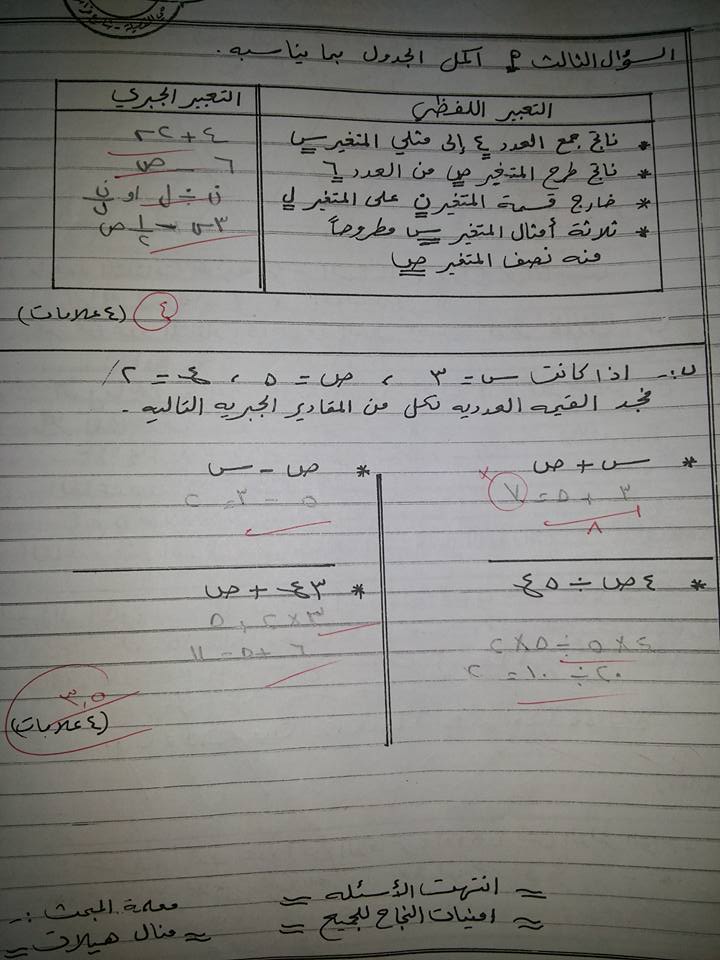 السؤال الثالث ٩ أكمل الجدول بما يناسبه.
التعبير اللفظي | التعبير الجبري
* ناتج جمع العدد ٤ إلى مثلي المتغير س | ٤ + ٢س
* ناتج طرح المتغير ص من العدد ٦ | ٦ - ص
* خارج قسمة المتغير ن على المتغير ل | ن ÷ ل او ن/ل
* ثلاثة أمثال المتغير س مطروحاً | ٣س - ١/٢ ص
منه نصف المتغير ص
٤ (٤ علامات)
ب:- اذا كانت س = ٣ ، ص = ٥ ، ع = ٢ /
فجد القيمه العدديه لكل من المقادير الجبريه التاليه.
* س + ص
٣ + ٥ = ٧ ×
٨
* ص - س
٥ - ٣ = ٢
* ٤ص ÷ ٥ع
٤×٥ ÷ ٥×٢
٢٠ ÷ ١٠ = ٢
* ٣ع + ص
٣×٢ + ٥
٦ + ٥ = ١١
٣,٥
(٤ علامات)
= انتهت الأسئله =
= امنيات النجاح للجميع =
معلمة المبحث :-
= منال هيلات =